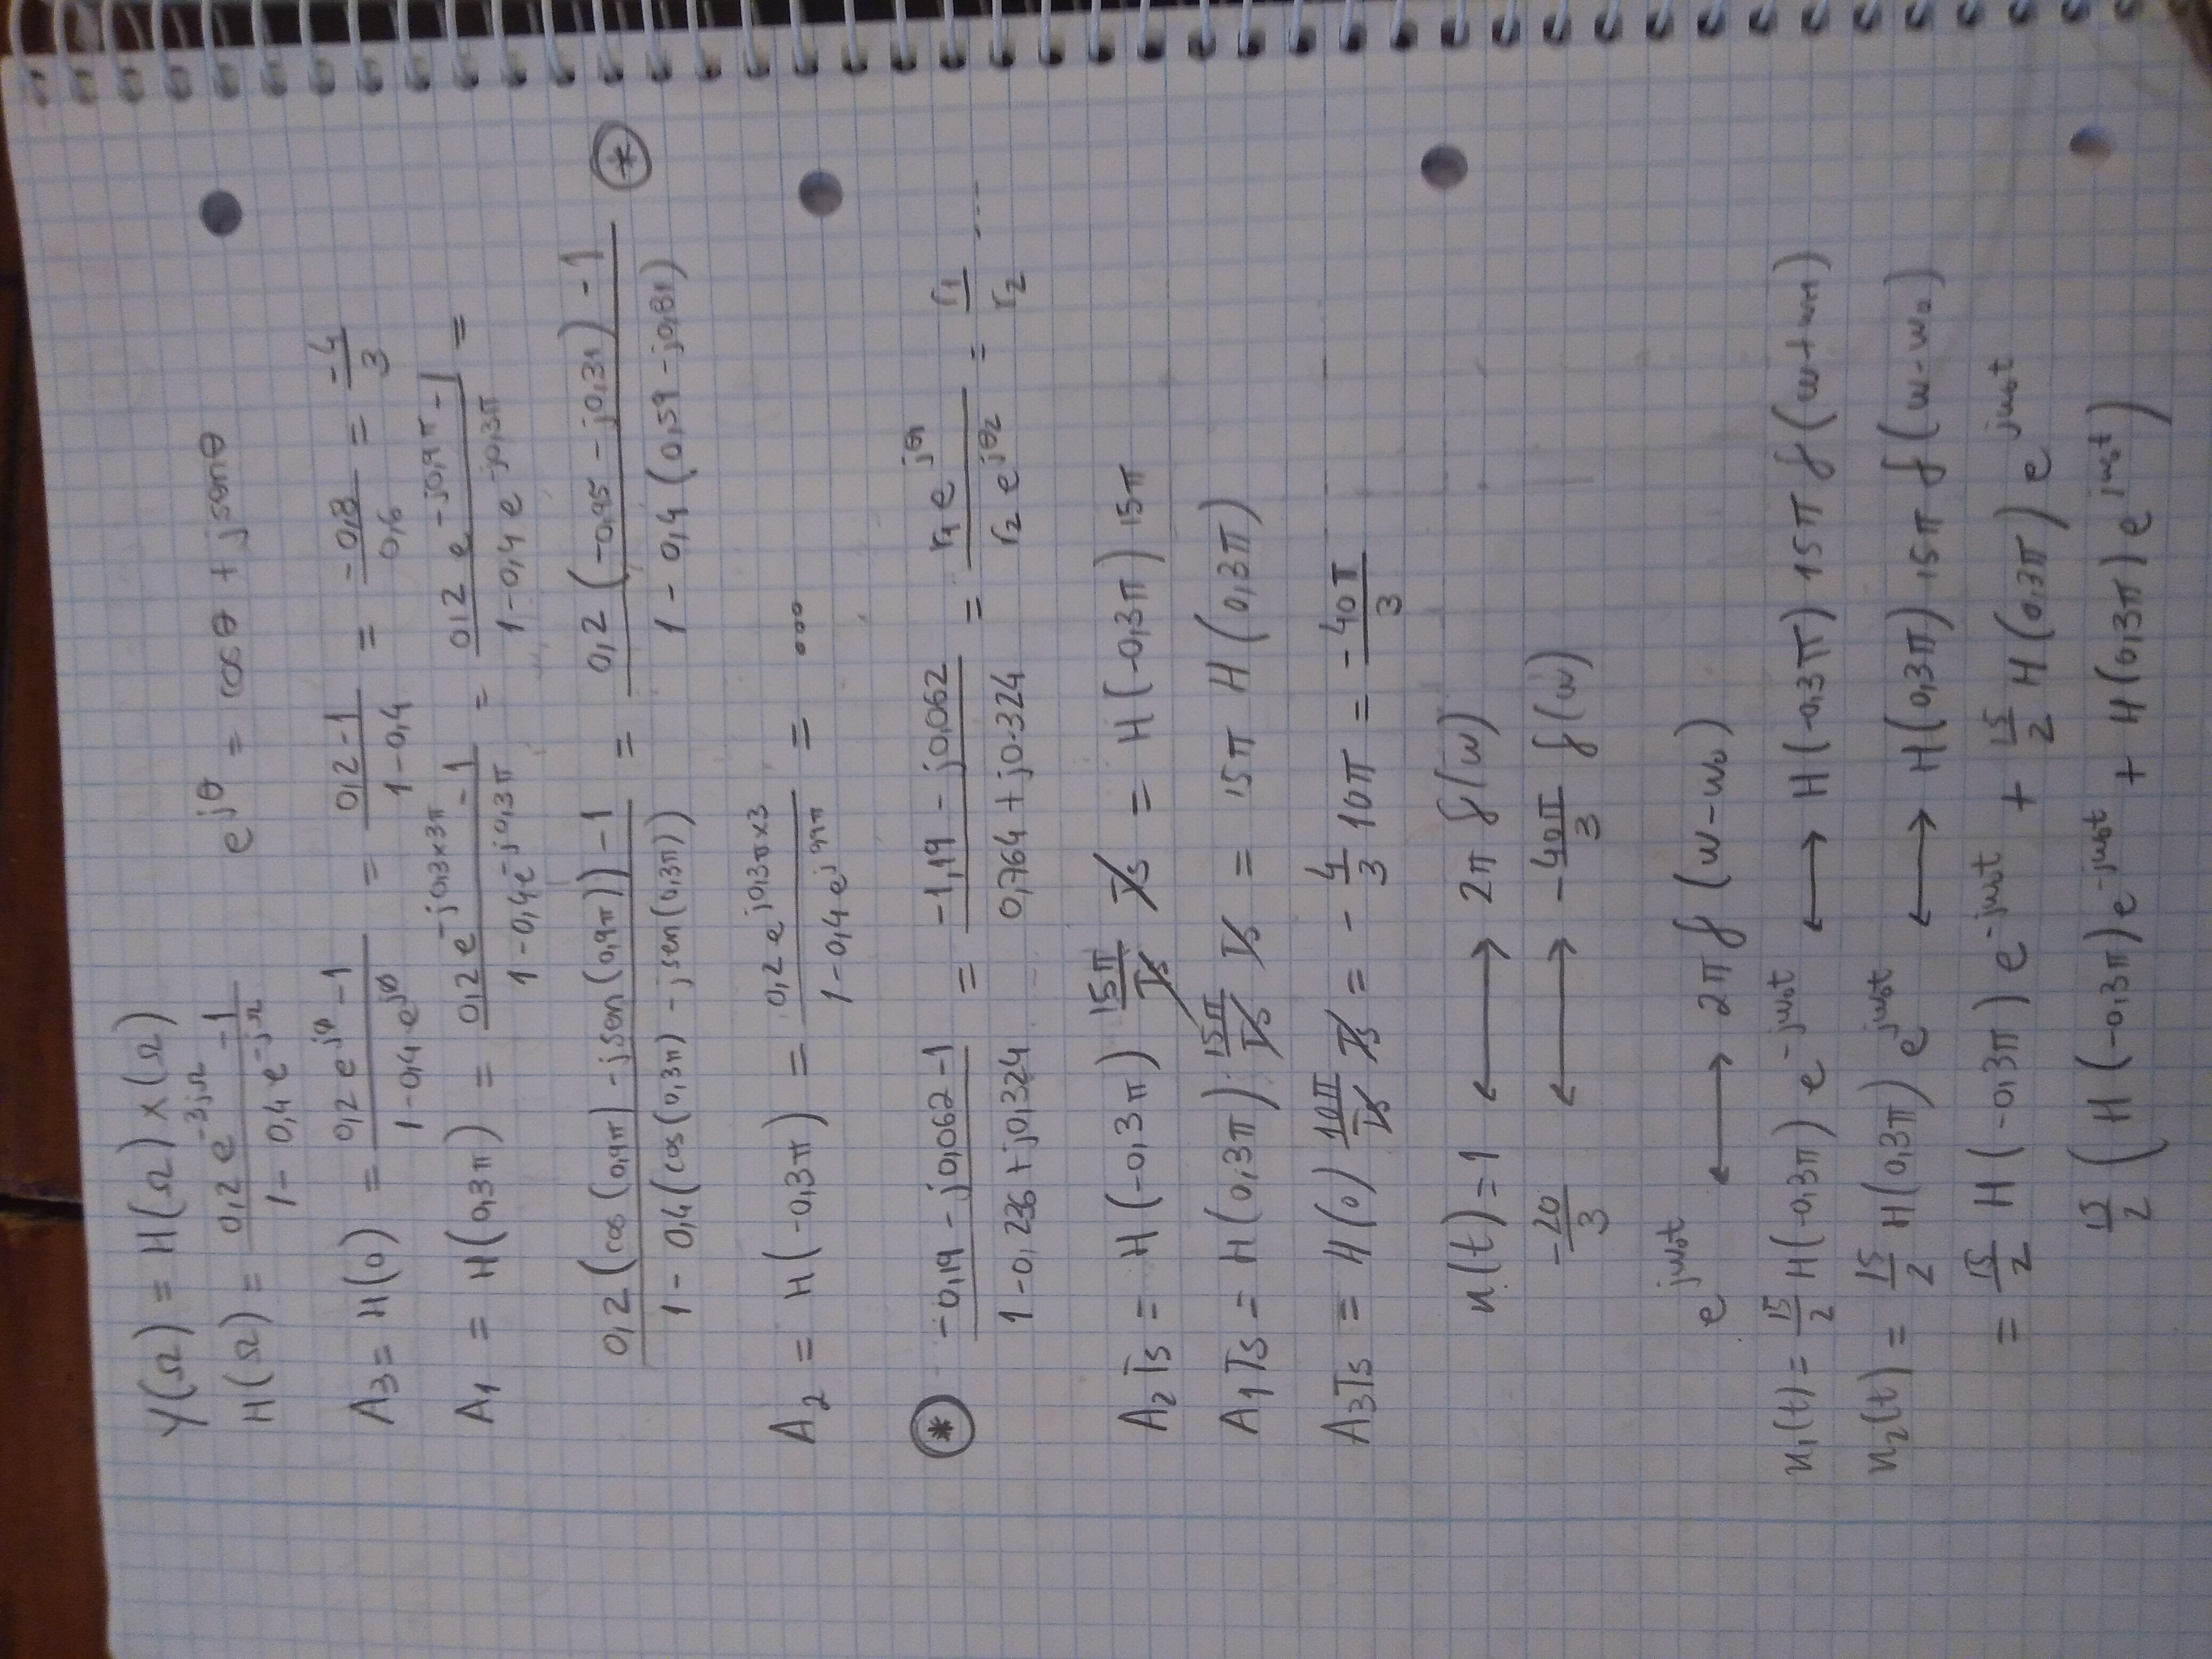 Y(Ω) = H(Ω) X(Ω)
H(Ω) = (0,2 e^{-3jΩ} - 1) / (1 - 0,4 e^{-jΩ})    e^{jθ} = cosθ + jsenθ
A3 = H(0) = (0,2 e^{j0} - 1) / (1 - 0,4 e^{j0}) = (0,2 - 1) / (1 - 0,4) = -0,8 / 0,6 = -4 / 3
A1 = H(0,3π) = (0,2 e^{-j0,3×3π} - 1) / (1 - 0,4 e^{-j0,3π}) = (0,2 e^{-j0,9π} - 1) / (1 - 0,4 e^{-j0,3π}) =
(0,2 (cos(0,9π) - jsen(0,9π)) - 1) / (1 - 0,4 (cos(0,3π) - jsen(0,3π))) = (0,2 (-0,95 - j0,31) - 1) / (1 - 0,4 (0,59 - j0,81)) ⊛
A2 = H(-0,3π) = (0,2 e^{j0,3π×3}) / (1 - 0,4 e^{j0,9π}) = ...
⊛ (-0,19 - j0,062 - 1) / (1 - 0,236 + j0,324) = (-1,19 - j0,062) / (0,764 + j0.324) = (r1 e^{jθ1}) / (r2 e^{jθ2}) = r1 / r2 ...
A2 Ts = H(-0,3π) 15π/Ts Ts = H(-0,3π) 15π
A1 Ts = H(0,3π) · 15π/Ts Ts = 15π H(0,3π)
A3 Ts = H(0) 10π/Ts Ts = - 4/3 10π = -40π / 3
x(t) = 1 ↔ 2π δ(w)
-20/3 ↔ -40π/3 δ(w)
e^{jw0t} ↔ 2π δ(w - w0)
x1(t) = 15/2 H(-0,3π) e^{-jw0t} ↔ H(-0,3π) 15π δ(w + w1)
x2(t) = 15/2 H(0,3π) e^{jw0t} ↔ H(0,3π) 15π δ(w - w0)
= 15/2 H(-0,3π) e^{-jw0t} + 15/2 H(0,3π) e^{jw0t}
15/2 (H(-0,3π) e^{-jw0t} + H(0,3π) e^{jw0t})